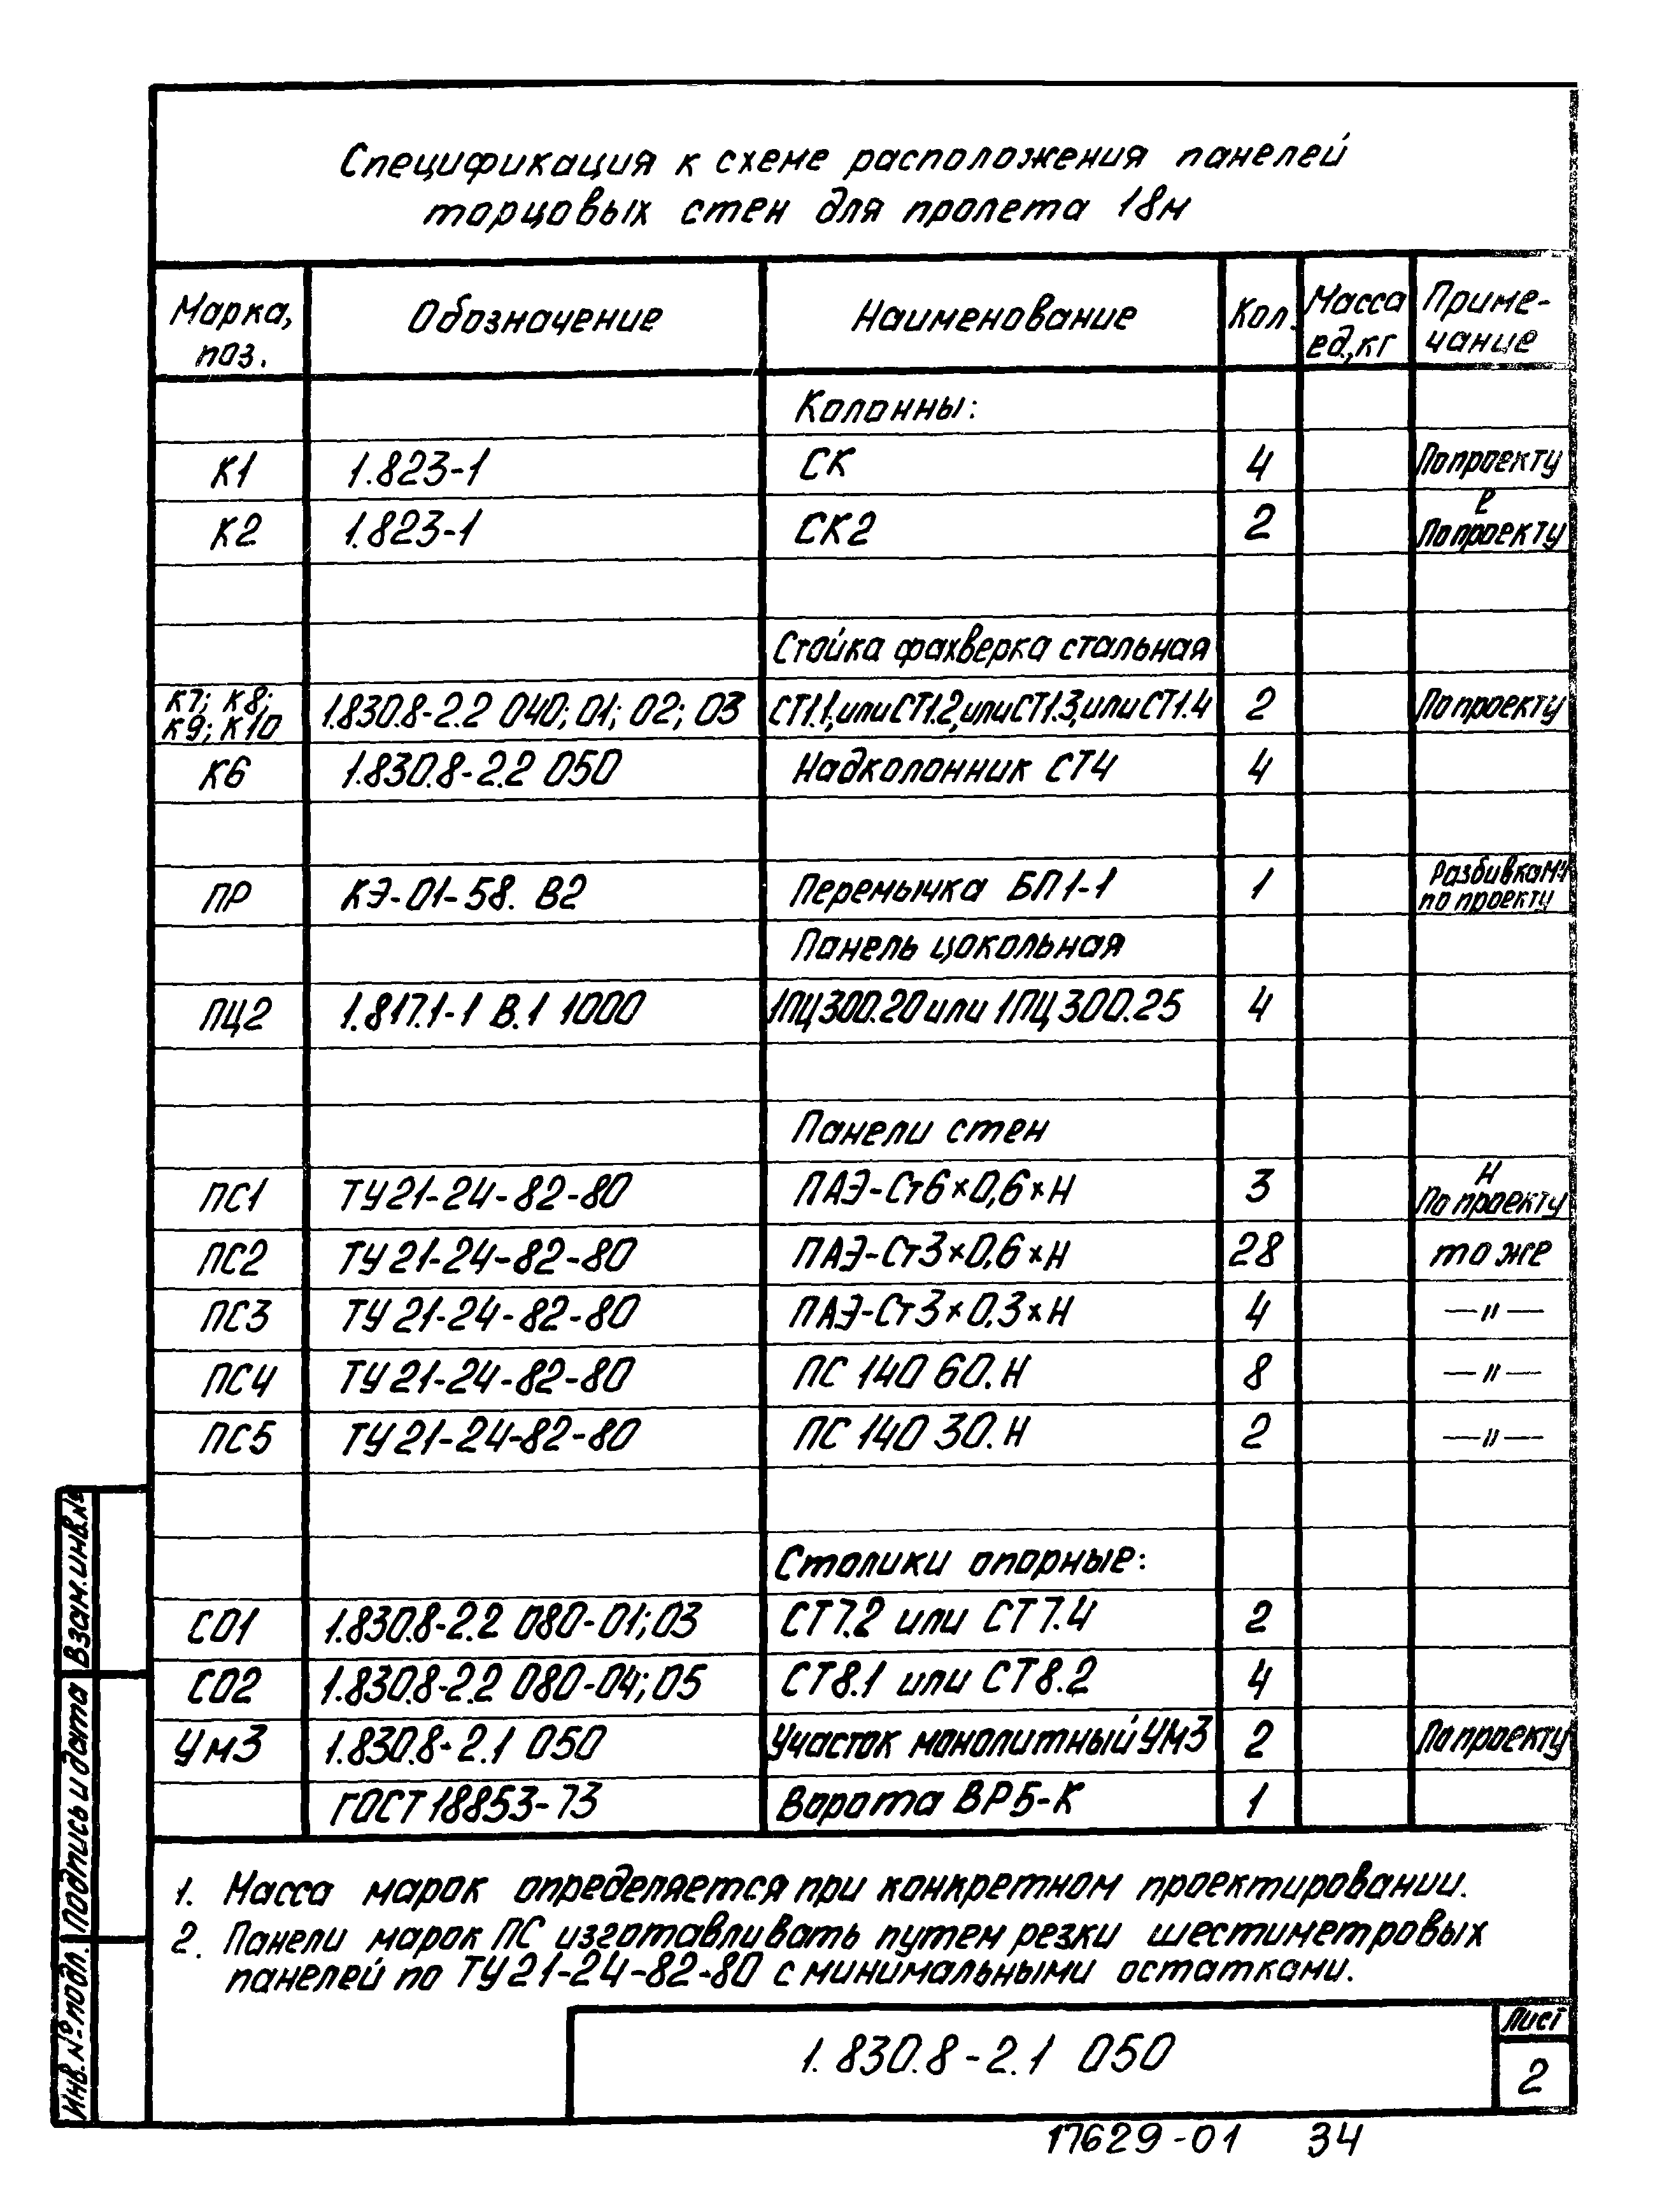 Спецификация к схеме расположения панелей
торцовых стен для пролета 18м
Марка, поз. Обозначение Наименование Кол. Масса ед,кг Приме-чание
Колонны:
К1 1.823-1 СК 4 По проекту
К2 1.823-1 СК2 2 е По проекту
Стойка фахверка стальная
К7; К8; К9; К10 1.830.8-2.2 040; 01; 02; 03 СТ1.1, или СТ1.2, или СТ1.3, или СТ1.4 2 По проекту
К6 1.830.8-2.2 050 Надколонник СТ4 4
ПР КЭ-01-58. В2 Перемычка БП1-1 1 Разбивка м.ч по проекту
Панель цокольная
ПЦ2 1.817.1-1 В.1 1000 1ПЦ300.20 или 1ПЦ300.25 4
Панели стен
ПС1 ТУ21-24-82-80 ПАЭ-Ст6×0,6×Н 3 Н По проекту
ПС2 ТУ21-24-82-80 ПАЭ-Ст3×0,6×Н 28 то же
ПС3 ТУ21-24-82-80 ПАЭ-Ст3×0.3×Н 4 —"—
ПС4 ТУ21-24-82-80 ПС 140 60.Н 8 —"—
ПС5 ТУ21-24-82-80 ПС 140 30.Н 2 —"—
Столики опорные:
СО1 1.830.8-2.2 080-01;03 СТ7.2 или СТ7.4 2
СО2 1.830.8-2.2 080-04;05 СТ8.1 или СТ8.2 4
УМ3 1.830.8-2.1 050 Участок монолитный УМ3 2 По проекту
ГОСТ 18853-73 Ворота ВР5-К 1
1. Масса марок определяется при конкретном проектировании.
2. Панели марок ПС изготавливать путем резки шестиметровых
панелей по ТУ21-24-82-80 с минимальными остатками.
Взам.инв.№
Подпись и дата
Инв.№ подл.
1.830.8-2.1 050
Лист
2
17629-01 34